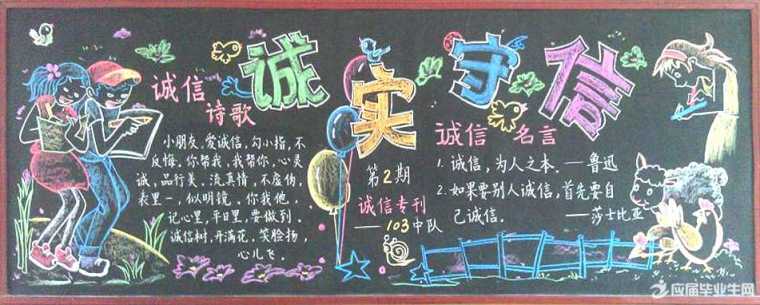 诚实守信
诚信
诗歌
小朋友,爱诚信,勾小指,不
反悔,你帮我,我帮你,心灵
诚,品行美,流真情,不虚伪,
表里一,似明镜,你我他,
记心里,平日里,要做到。
诚信树,开满花,笑脸扬,
心儿飞。
第2期
诚信专刊
——103中队
诚信名言
1.诚信,为人之本。——鲁迅
2.如果要别人诚信,首先要自
己诚信。——莎士比亚
应届毕业生网